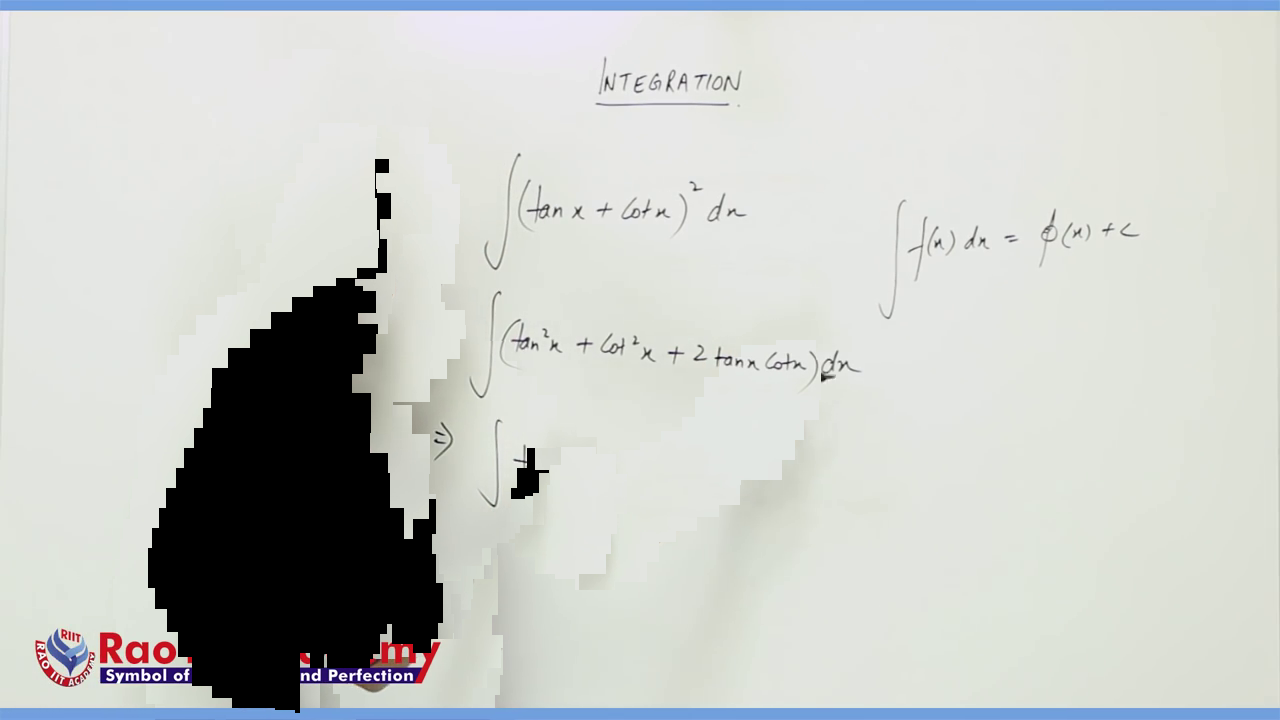 INTEGRATION
∫(tan x + cot x)² dx
∫f(x) dx = ϕ(x) + c
∫(tan²x + cot²x + 2 tanx cotx) dx
⇒ ∫ t
RIIT
RAO IIT ACADEMY
Rao my
Symbol of nd Perfection